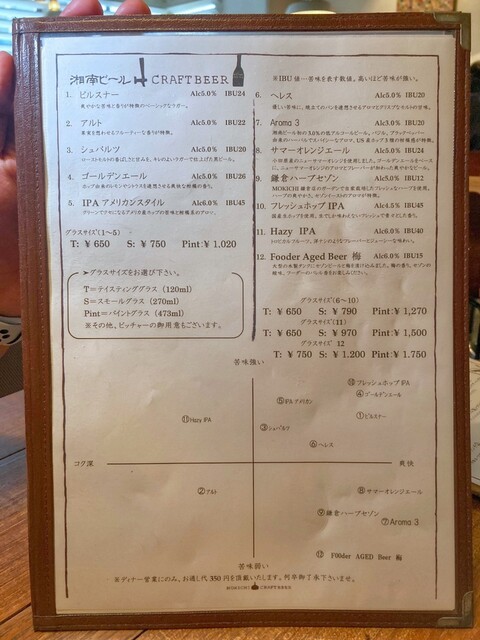 湘南ビール CRAFT BEER
※IBU 値…苦味を表す数値。高いほど苦味が強い。
1. ピルスナー Alc5.0% IBU22
爽やかな苦味と香りが特徴のベーシックなラガー。
2. アルト Alc5.0% IBU24
果実を想わせるフルーティーな香りが特徴。
3. シュバルツ Alc5.0% IBU20
ローストモルトの香ばしさと甘みを、キレのよいラガーで仕上げた黒ビール。
4. ゴールデンエール Alc5.0% IBU26
ホップ由来のレモンやシトラスを連想させる爽快な柑橘の香り。
5. IPA アメリカンスタイル Alc6.0% IBU45
グラスサイズ(1～5)
T: ¥ 650 S: ¥ 750 Pint: ¥ 1,020
➤グラスサイズをお選び下さい。
T=テイスティンググラス (120ml)
S=スモールグラス (270ml)
Pint=パイントグラス (473ml)
※その他、ピッチャーの御用意もございます。
6. ヘレス Alc5.0% IBU20
優しい苦味に、焼立てのパンを連想させるアロマとクリスプなモルトの甘味。
7. Aroma 3 Alc3.0% IBU20
湘南ビール初の3.0%の低アルコールビール。バジル、ブラックペッパー
由来のハーバルでスパイシーなアロマ。US 産ホップ3種の特徴感が特徴。
8. サマーオレンジエール Alc5.0% IBU24
小田原産のニューサマーオレンジを使用しました。ゴールデンエールをベース
に、ニューサマーオレンジのアロマとフレーバーが加わった爽やかなビール。
9. 鎌倉ハーブセゾン Alc5.0% IBU12
MOKICHI 鎌倉店のガーデンで栽培収穫したフレッシュなハーブを使用。
ハーブの爽やかさ、セゾンイーストのアロマが特徴。
10. フレッシュホップ IPA Alc4.5% IBU45
11. Hazy IPA Alc6.0% IBU40
トロピカルフルーツ、洋ナシのようなフレーバーとジューシーな味わい。
12. Fooder Aged Beer 梅 Alc6.0% IBU15
グラスサイズ(6～10)
T: ¥ 650 S: ¥ 790 Pint: ¥ 1,270
グラスサイズ(11)
T: ¥ 650 S: ¥ 970 Pint: ¥ 1,500
グラスサイズ 12
T: ¥ 750 S: ¥ 1.200 Pint: ¥ 1.750
苦味強い
⑩フレッシュホップ IPA
④ゴールデンエール
⑤IPA アメリカン
①ピルスナー
⑪Hazy IPA
③シュバルツ
⑥ヘレス
コク深 爽快
②アルト
⑧サマーオレンジエール
⑨鎌倉ハーブセゾン
⑦Aroma 3
⑫ F00der AGED Beer 梅
苦味弱い
※ディナー営業にのみ、お通し代 350 円を頂戴いたします。何卒御了承下さいませ。
MOKICHI CRAFT BEER